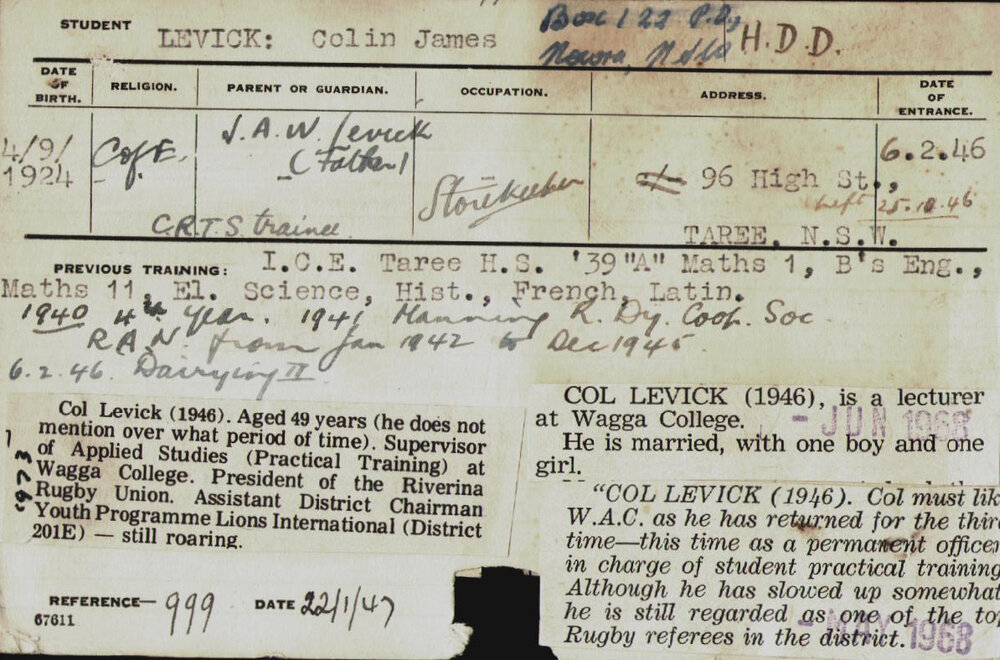 STUDENT LEVICK: Colin James Box 122 P.O, H.D.D.
Nowra, N.S.W.
DATE OF BIRTH. RELIGION. PARENT OR GUARDIAN. OCCUPATION. ADDRESS. DATE OF ENTRANCE.
4/9/1924 C of E. J.A.W. Levick (Father) Storekeeper 96 High St., 6.2.46
left 25.10.46
C.R.T.S trainee TAREE, N.S.W.
PREVIOUS TRAINING: I.C.E. Taree H.S. '39 "A" Maths 1, B's Eng.,
Maths 11, El. Science, Hist., French, Latin.
1940 4th Year. 1941 Manning R. Dy. Coop. Soc
R.A.N. from Jan 1942 to Dec 1945
6.2.46. Dairying II
Col Levick (1946). Aged 49 years (he does not
mention over what period of time). Supervisor
of Applied Studies (Practical Training) at
Wagga College. President of the Riverina
Rugby Union. Assistant District Chairman
Youth Programme Lions International (District
201E) — still roaring.
1973
COL LEVICK (1946), is a lecturer
at Wagga College.
- JUN 1968
He is married, with one boy and one
girl.
"COL LEVICK (1946). Col must lik
W.A.C. as he has returned for the third
time—this time as a permanent officer
in charge of student practical training
Although he has slowed up somewhat
he is still regarded as one of the top
Rugby referees in the district.
- MAY 1968
REFERENCE— 999 DATE 22/1/47
67611